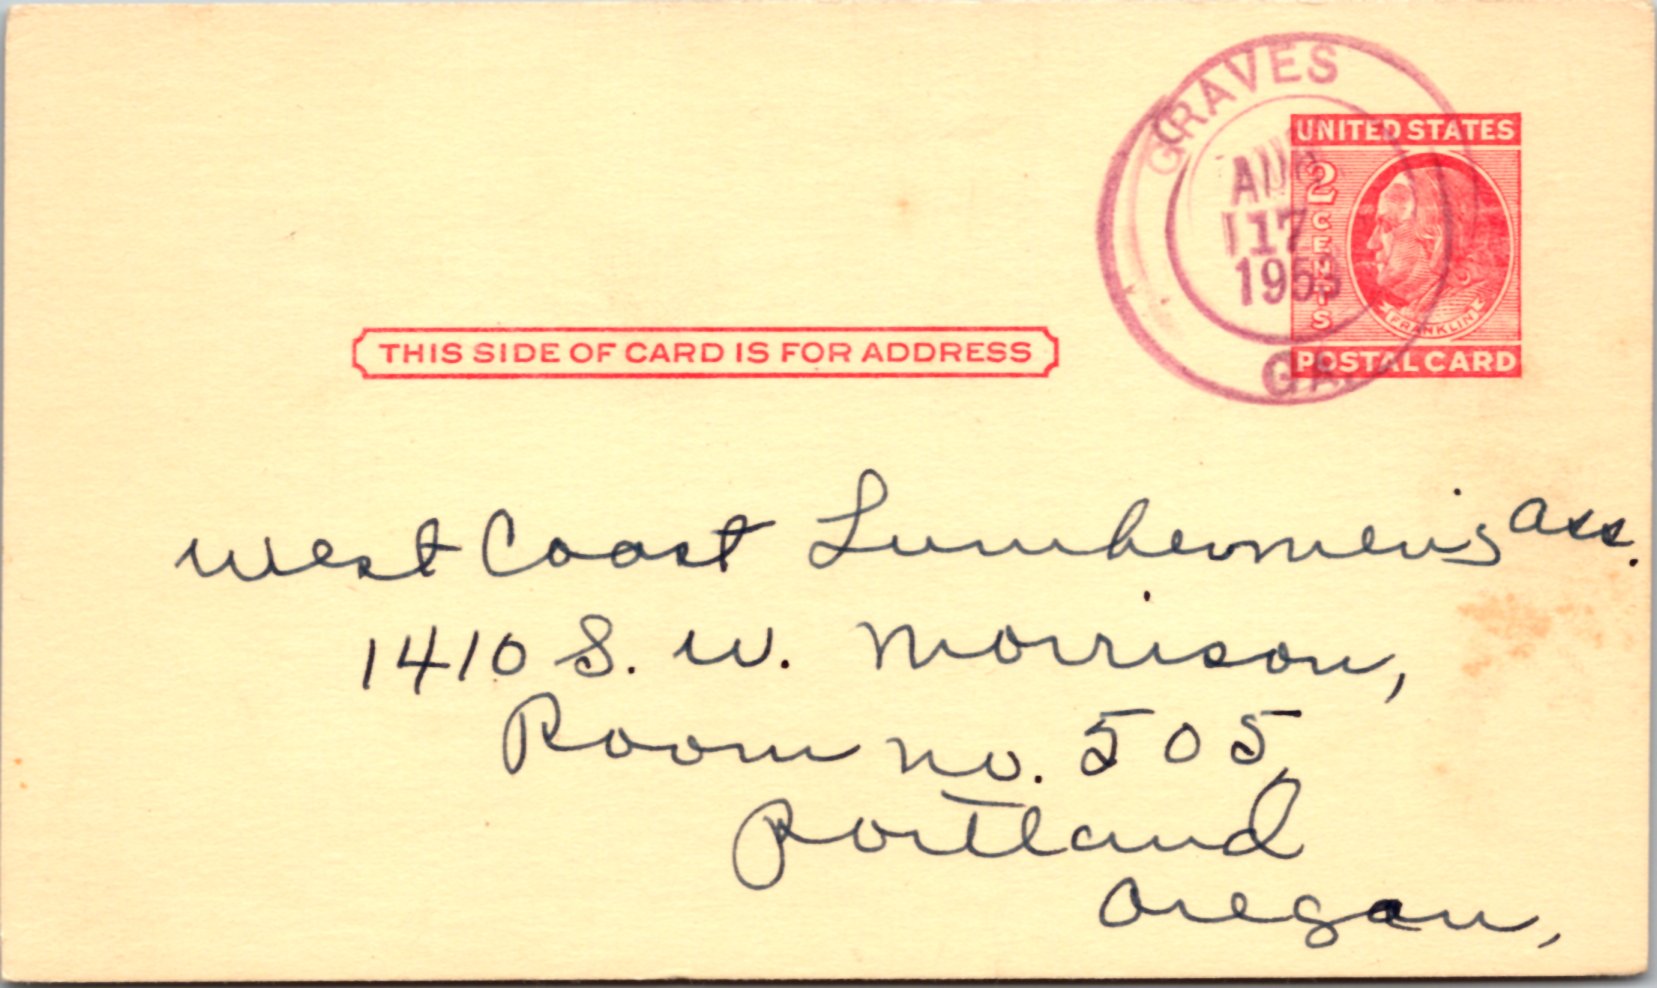 GRAVES
AUG
17
1953
GA.
UNITED STATES
2
CENTS
FRANKLIN
POSTAL CARD
THIS SIDE OF CARD IS FOR ADDRESS
West Coast Lumbermen's Ass.
1410 S. W. Morrison,
Room no. 505,
Portland
Oregon,